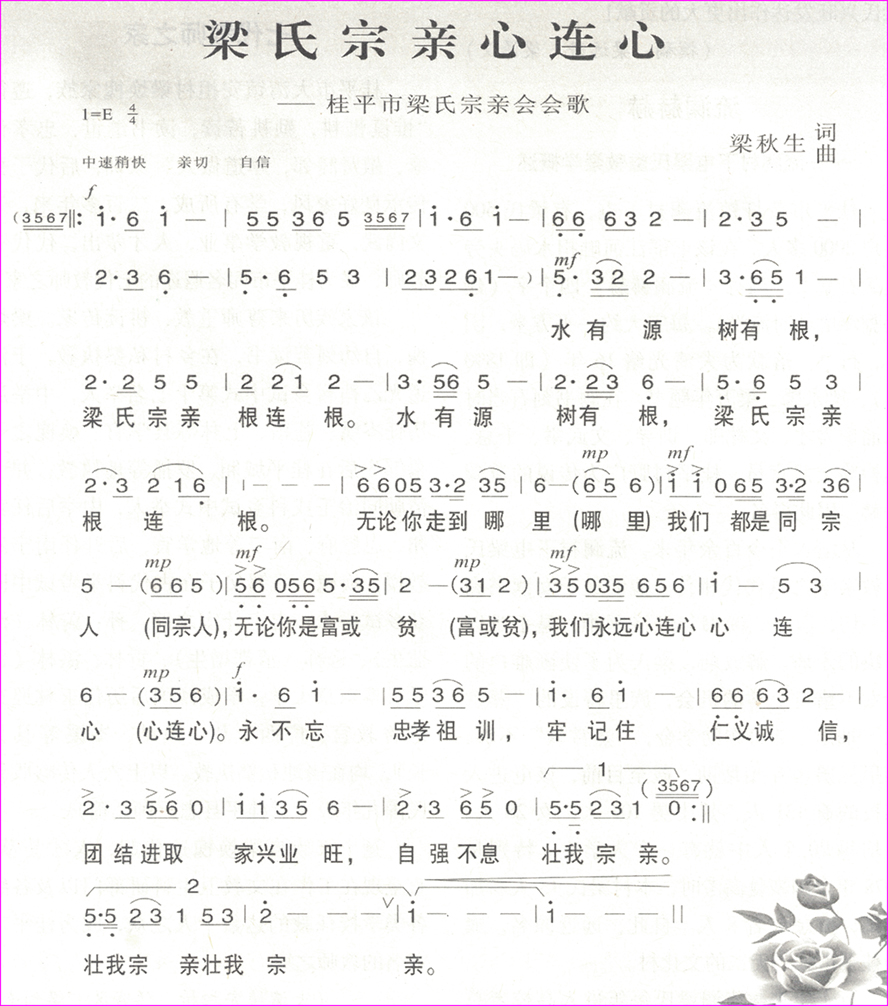 梁氏宗亲心连心
——桂平市梁氏宗亲会会歌
1=E 4/4
梁秋生 词曲
中速稍快 亲切 自信
f
(3567‖: i·6 i — | 55365 3567 | i·6 i — | 66 632 — | 2·35 — |
mf
2·36 — | 5·6 5 3 | 23261 — ) | 5·32 2 — | 3·651 — |
水有源 树有根，
2·2 5 5 | 2 21 2 — | 3·56 5 — | 2·23 6 — | 5·6 5 3 |
梁氏宗亲 根连根。 水有源 树有根， 梁氏宗亲
mp mf
2·3 216 | 1 — — — | 66053·2 35 | 6 — (656) | i i 065 3·2 36 |
根连根。 无论你走到哪里(哪里)我们都是同宗
mp mf mp mf
5 — (665) | 56 0565·35 | 2 — (312) | 35035 656 | i — 5 3 |
人 (同宗人)，无论你是富或贫 (富或贫)，我们永远心连心心连
mp f
6 — (356) | i·6 i — | 55365 — | i·6 i — | 66632 — |
心 (心连心)。永不忘 忠孝祖训， 牢记住 仁义诚信，
1 (3567)
2·3 5·60 | i i 35 6 — | 2·3 650 | 5·5 231 0 :‖
团结进取 家兴业旺， 自强不息 壮我宗亲。
2
5·5 23 1 53 | 2 — — — ∨ | i — — — | i — — — ‖
壮我宗亲壮我宗 亲。